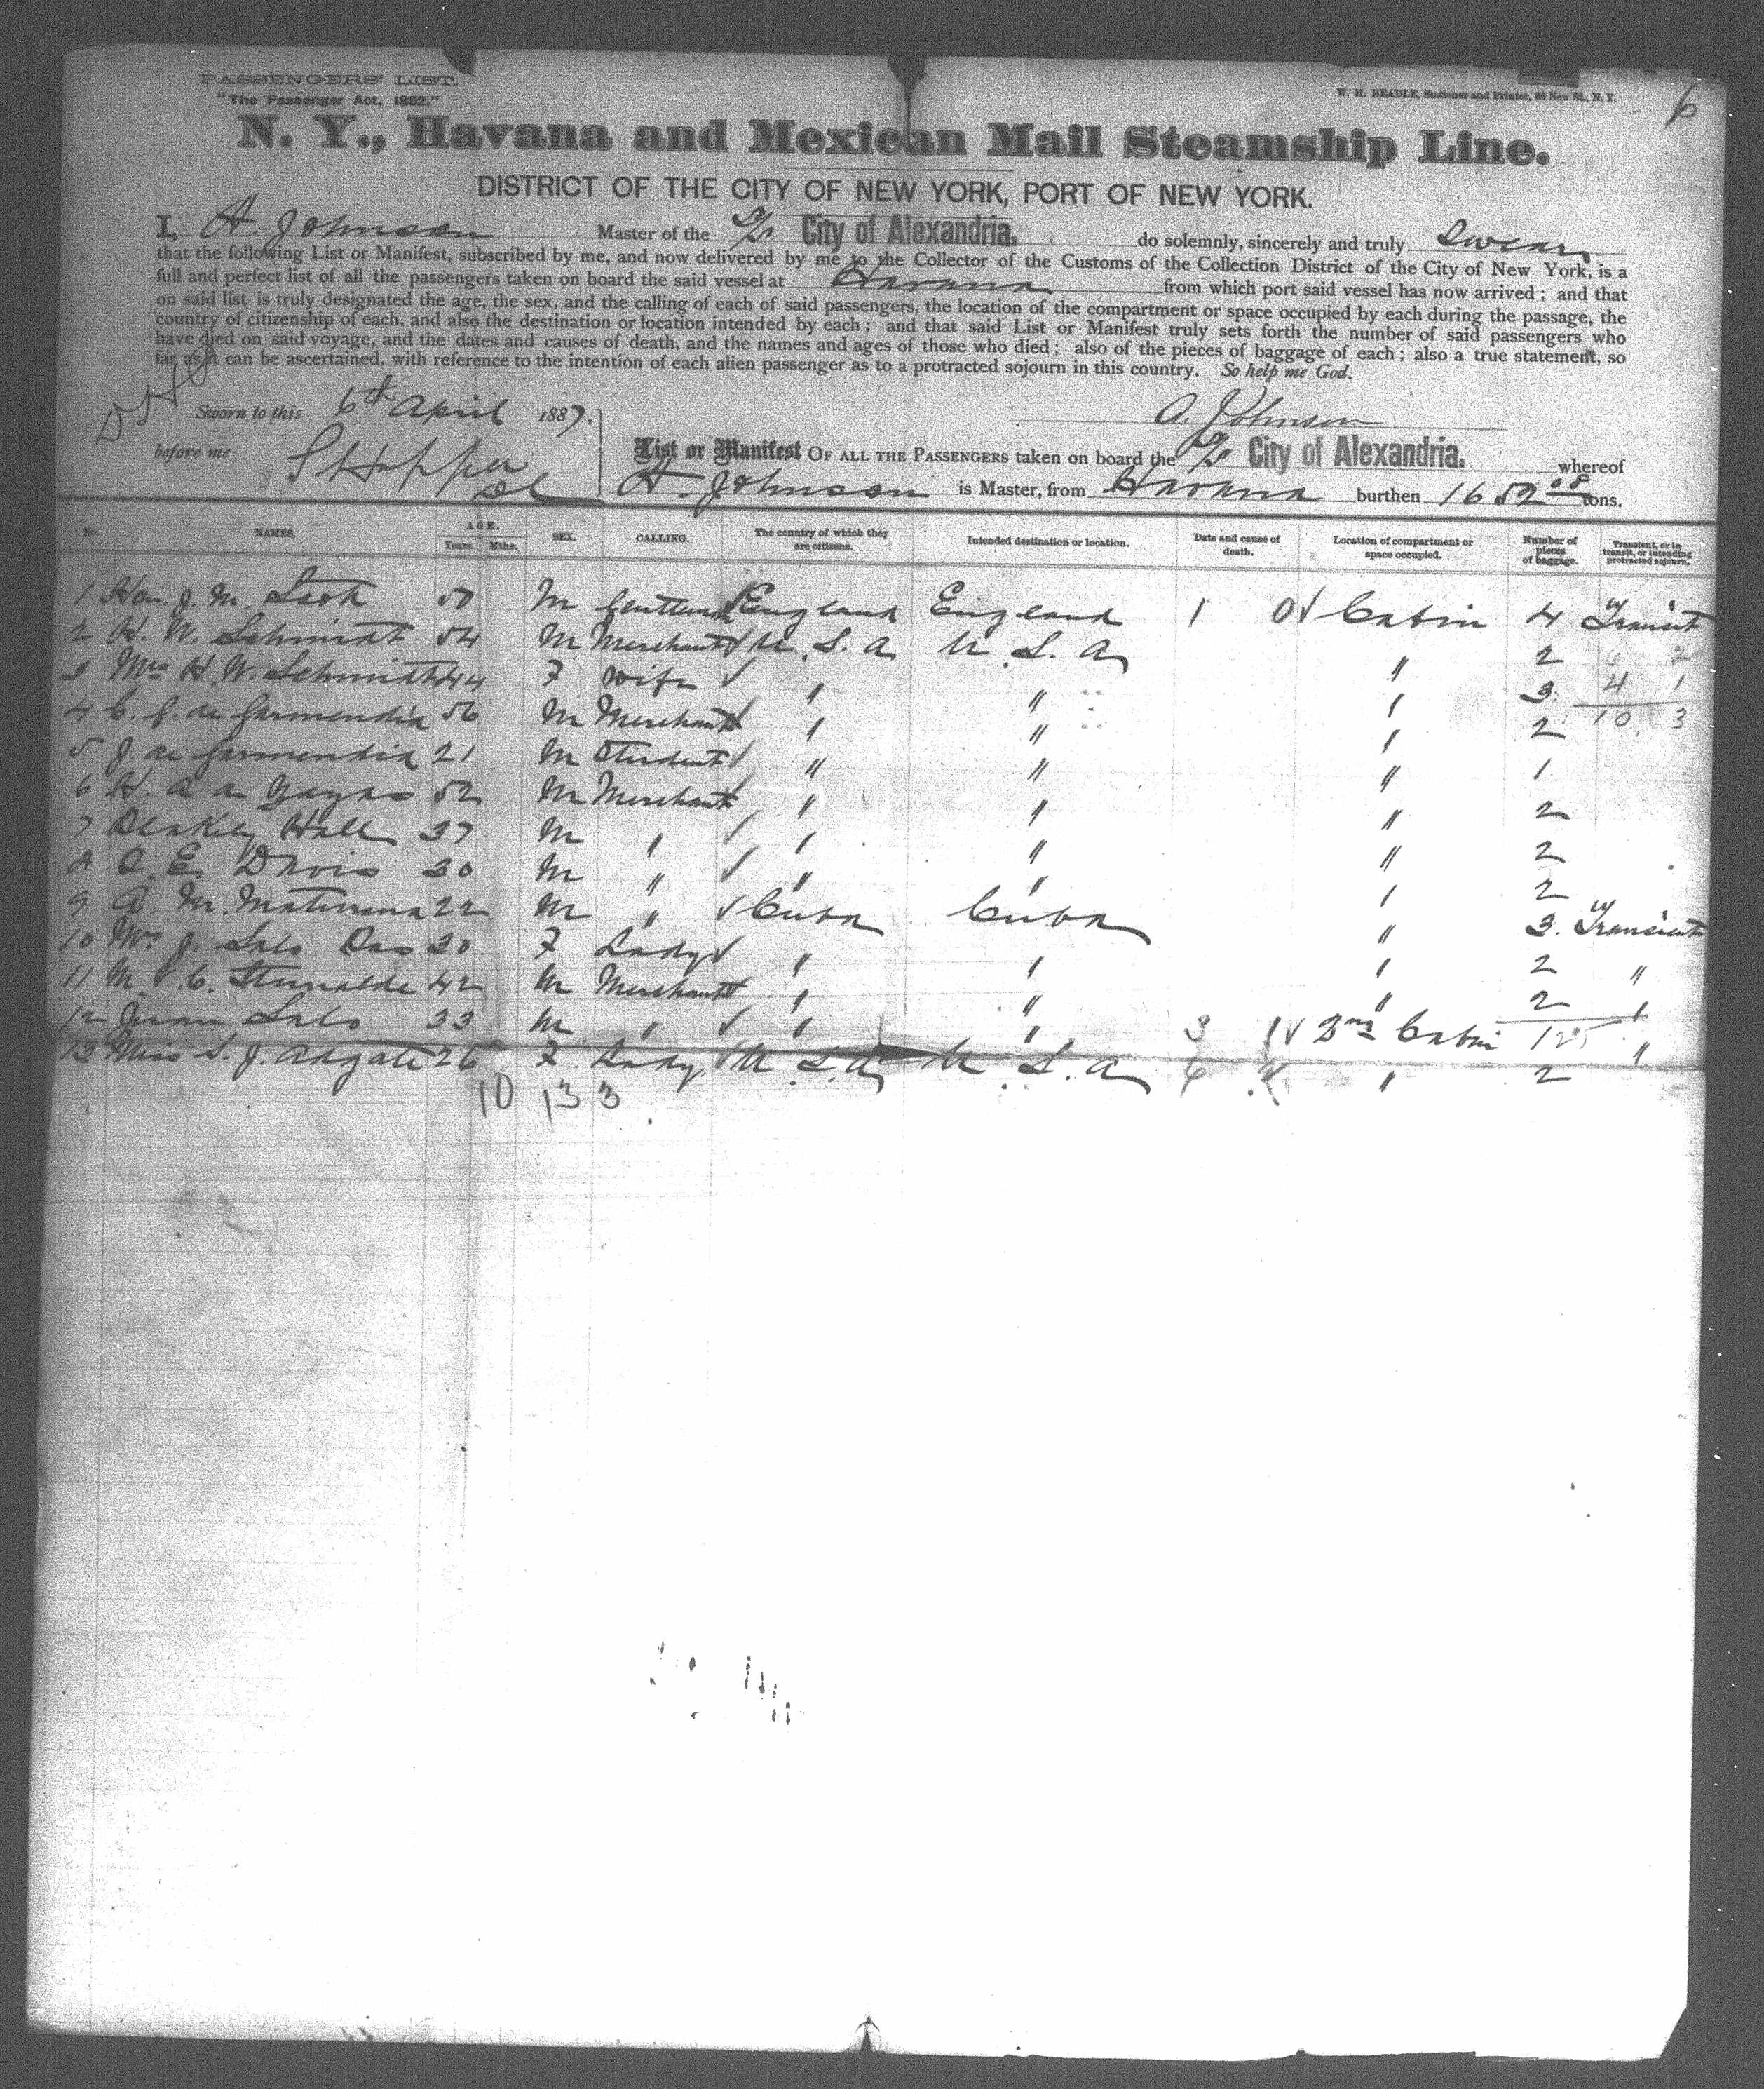 PASSENGERS' LIST.
"The Passenger Act, 1882."
W. H. BEADLE, Stationer and Printer, 68 New St., N. Y.
6
N. Y., Havana and Mexican Mail Steamship Line.
DISTRICT OF THE CITY OF NEW YORK, PORT OF NEW YORK.
I, A. Johnson Master of the S/S City of Alexandria. do solemnly, sincerely and truly swear
that the following List or Manifest, subscribed by me, and now delivered by me to the Collector of the Customs of the Collection District of the City of New York, is a
full and perfect list of all the passengers taken on board the said vessel at Havana from which port said vessel has now arrived; and that
on said list is truly designated the age, the sex, and the calling of each of said passengers, the location of the compartment or space occupied by each during the passage, the
country of citizenship of each, and also the destination or location intended by each; and that said List or Manifest truly sets forth the number of said passengers who
have died on said voyage, and the dates and causes of death, and the names and ages of those who died; also of the pieces of baggage of each; also a true statement, so
far as it can be ascertained, with reference to the intention of each alien passenger as to a protracted sojourn in this country. So help me God.
Sworn to this 6th April 1887.
A. Johnson
before me
List or Manifest OF ALL THE PASSENGERS taken on board the S/S City of Alexandria. whereof
A. Johnson is Master, from Havana burthen 1652 08 tons.
No. NAMES. AGE. Years. Mths. SEX. CALLING. The country of which they are citizens. Intended destination or location. Date and cause of death. Location of compartment or space occupied. Number of pieces of baggage. Transient, or in transit, or intending protracted sojourn.
1 Hon. J. M. 50 M Gentleman England England 1 0 Cabin 4 in Transit
2 H. W. Schmidt 54 M Merchant U. S. A U. S. A " 2
3 Mrs H. W. Schmidt 44 F Wife " " " 3 4 1
4 C. G. de Garmendia 56 M Merchant " " " 2 10 3
5 J. de Garmendia 21 M Student " " " 1
6 H. A de 52 M Merchant " " " 2
7 Blakely Hall 37 M " " " " 2
8 C. E. Davis 30 M " " " " 2
9 A. M. 22 M " Cuba Cuba " 3 in Transient
10 Mrs J. 30 F Lady " " " 2 "
11 M. C. 42 M Merchant " " " 2 "
12 Juan 33 M " " " 3 1 2nd Cabin 1 "
13 Miss S. J. Adgate 26 F Lady U. S. A U. S. A 6 " 2
10 13 3